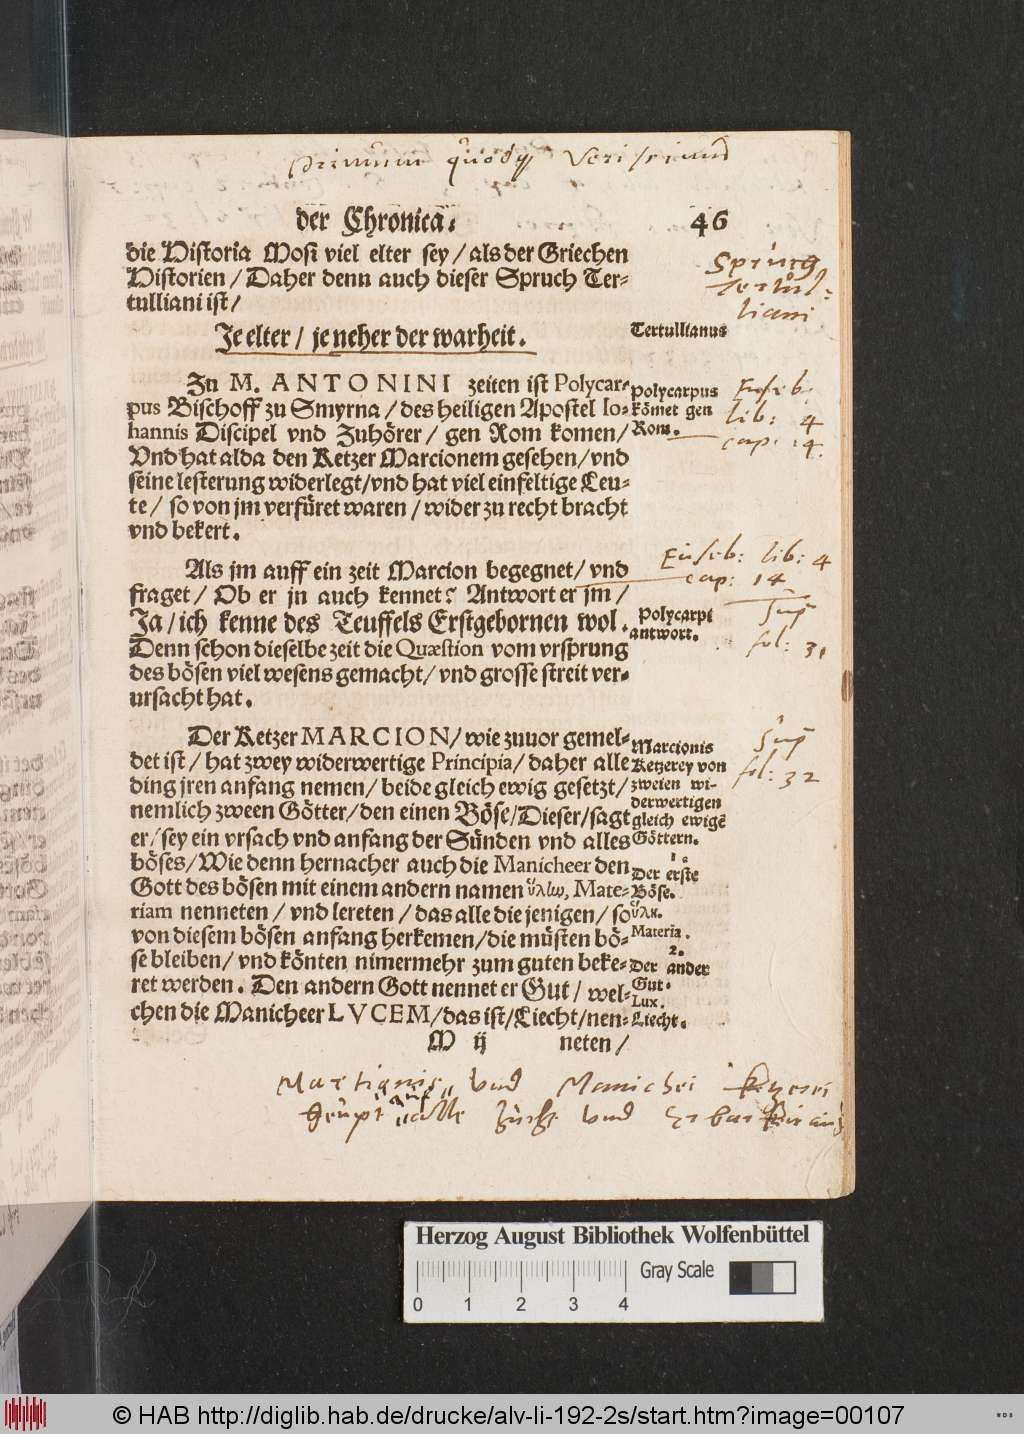 primum quodq̃ verissimum
der Chronica.
46
die Historia Mosi viel elter sey / als der Griechen
Historien / Daher denn auch dieser Spruch Ter-
tulliani ist /
Spruch
Tertul-
liani
Je elter / je neher der warheit.
Tertullianus
Zu M. ANTONINI zeiten ist Polycar-
pus Bischoff zu Smyrna / des heiligen Apostel Io-
hannis Discipel vnd Zuhörer / gen Rom komen /
Vnd hat alda den Ketzer Marcionem gesehen / vnd
seine lesterung widerlegt / vnd hat viel einfeltige Leu-
te / so von jm verfüret waren / wider zu recht bracht
vnd bekert.
Polycarpus
kömet gen
Rom.
Euseb.
lib: 4
cap: 14.
Als jm auff ein zeit Marcion begegnet / vnd
fraget / Ob er jn auch kennet? Antwort er jm /
Ja / ich kenne des Teuffels Erstgebornen wol.
Denn schon dieselbe zeit die Quæstion vom vrsprung
des bösen viel wesens gemacht / vnd grosse streit ver-
ursacht hat.
Euseb: lib: 4
cap: 14
Polycarpi
antwort.
Sup
fol: 31
Der Ketzer MARCION / wie zuuor gemel-
det ist / hat zwey widerwertige Principia / daher alle
ding jren anfang nemen / beide gleich ewig gesetzt /
nemlich zween Götter / den einen Böse / Dieser / sagt
er / sey ein vrsach vnd anfang der Sünden vnd alles
böses / Wie denn hernacher auch die Manicheer den
Gott des bösen mit einem andern namen ὕλίω, Mate-
riam nenneten / vnd lereten / das alle die jenigen / so
von diesem bösen anfang herkemen / die müsten bö-
se bleiben / vnd könten nimermehr zum guten beke-
ret werden. Den andern Gott nennet er Gut / wel-
chen die Manicheer LVCEM / das ist / Liecht / nen-
Marcionis
Ketzerey von
zweien wi-
derwertigen
gleich ewigẽ
Göttern.
1.
Der erste
Böse.
ὕλη.
Materia.
2.
Der ander
Gut.
Lux.
Liecht.
Sup
fol: 32
M ij
neten /
Martionis vnd Manichei ketzerei
alle Zucht vnd
Herzog August Bibliothek Wolfenbüttel
0 1 2 3 4
Gray Scale
© HAB http://diglib.hab.de/drucke/alv-li-192-2s/start.htm?image=00107